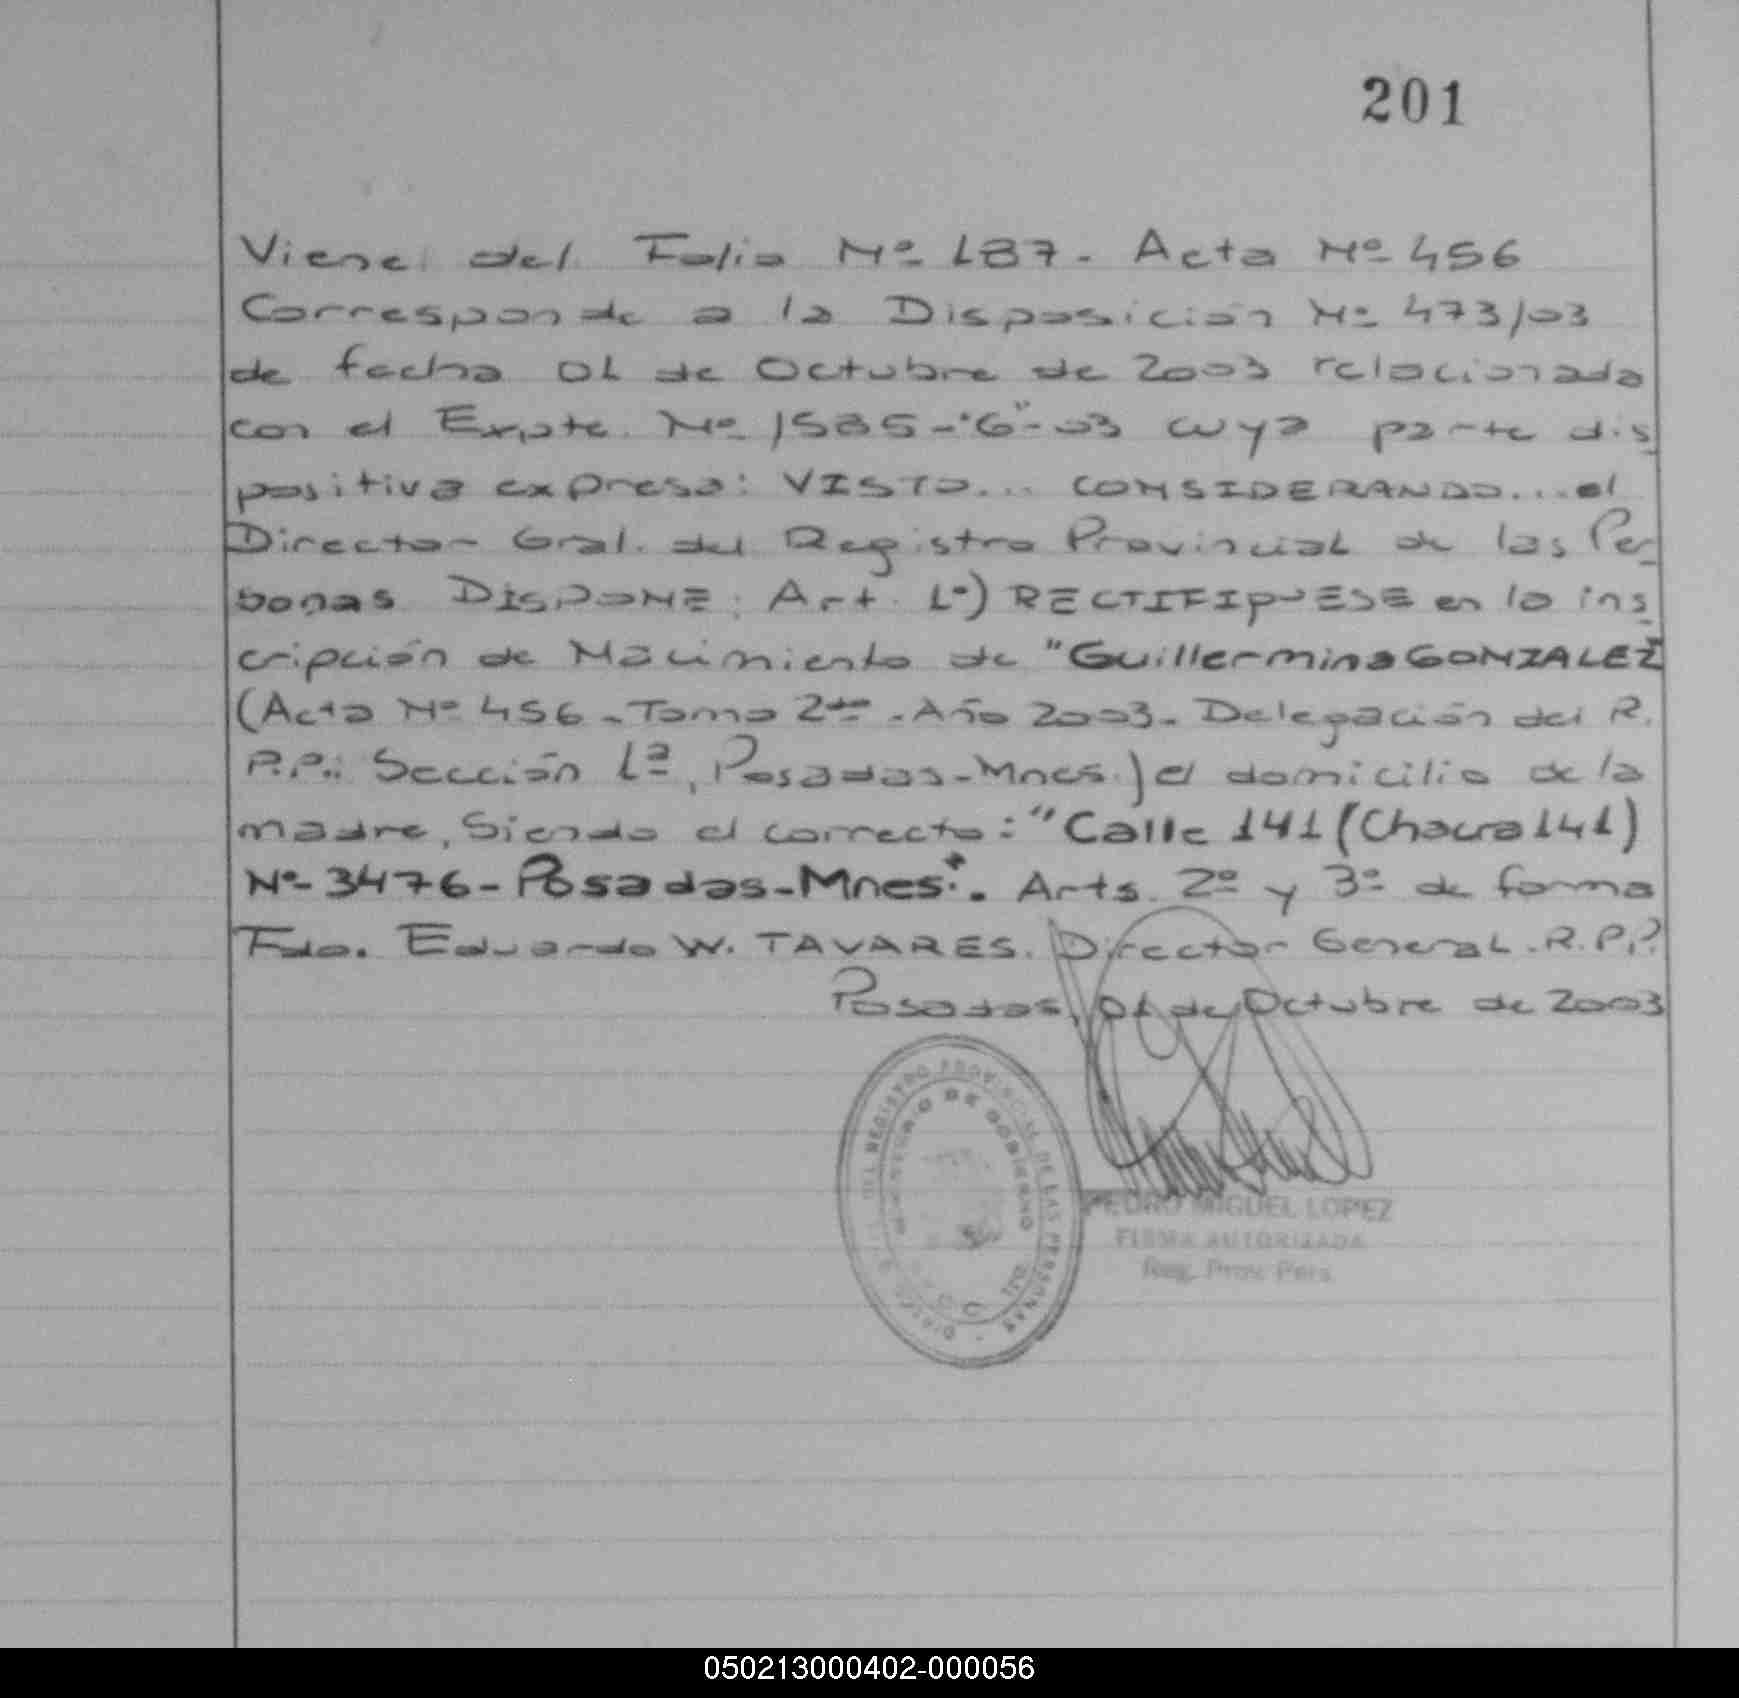 201
Viene del Folio Nº 187. Acta Nº 456
Corresponde a la Disposición Nº 473/03
de fecha 01 de Octubre de 2003 relacionada
con el Expte. Nº 1585-"G"-03 cuya parte dis
positiva expresa: VISTO... CONSIDERANDO... el
Director Gral. del Registro Provincial de las Per
sonas DISPONE: Art. 1º) RECTIFIQUESE en la ins
cripción de Nacimiento de "Guillermina GONZALEZ
(Acta Nº 456 - Tomo 2do - Año 2003 - Delegación del R.
P.P.: Sección 1ª, Posadas-Mnes.) el domicilio de la
madre, Siendo el correcto: "Calle 141 (Chacra 141)
Nº 3476 - Posadas - Mnes". Arts. 2º y 3º de forma
Fdo. Eduardo W. TAVARES. Director General. R.P.P.
Posadas, 01 de Octubre de 2003
DEL REGISTRO PROVINCIAL DE LAS PERSONAS
MINISTERIO DE GOBIERNO
PEDRO MIGUEL LOPEZ
FIRMA AUTORIZADA
Reg. Prov. Pers.
050213000402-000056